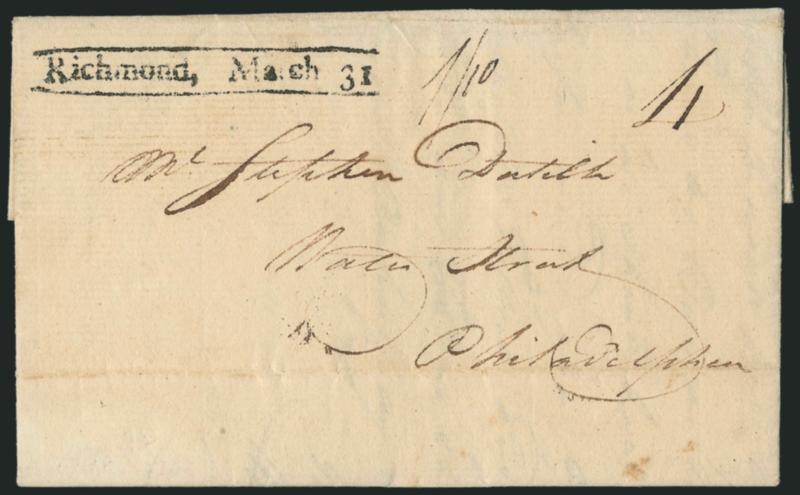 Richmond, March 31
1/10
4
Mr Stephen Dutilh
Water Street
Philadelphia